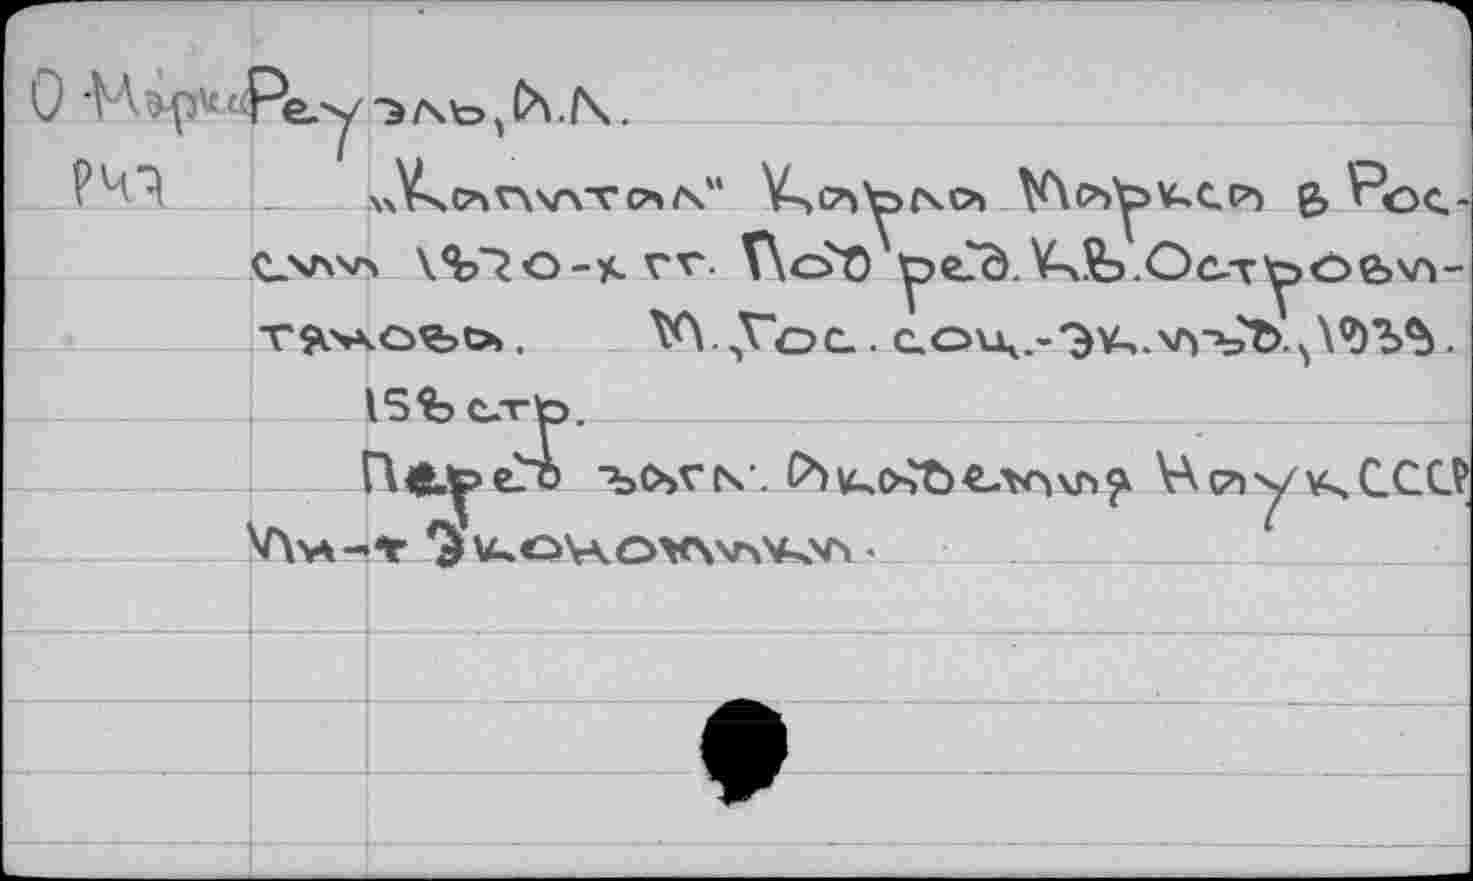 О Маркс Реуэль, А.Л.
РЧЗ „Капитал" Карла Маркса в Рос-
сии 1870-х гг. Под ред. К.В.Острови-
тянова. М.,Гос. соц.-эк.изд.,1939.
158 стр.
Перед загл: Академия Наук СССР
Ин-т Экономики.